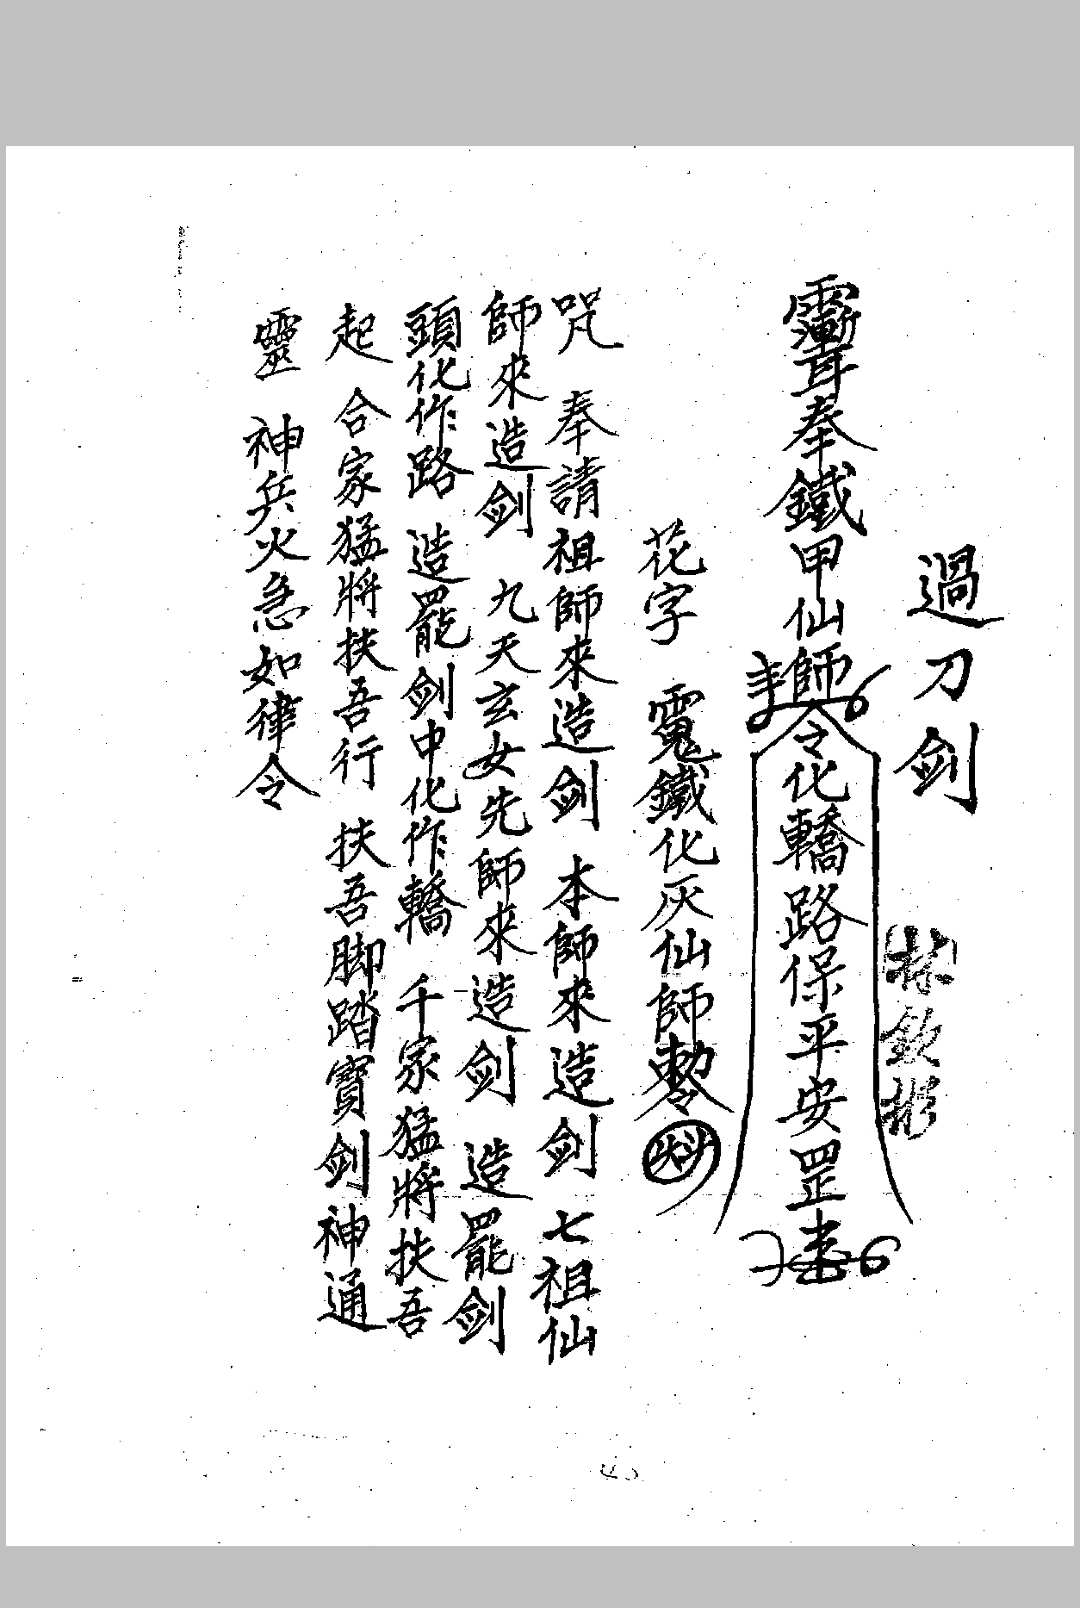 過刀剑
林欽彬
奉鐵甲仙師令化轎路保平安罡
花字 鐵化灰仙師勅令
咒 奉請祖師來造剑 本師來造剑 七祖仙
師來造剑 九天玄女先師來造剑 造罷剑
頭化作路 造罷剑中化作轎 千家猛將扶吾
起 合家猛將扶吾行 扶吾脚踏寳剑神通
靈 神兵火急如律令